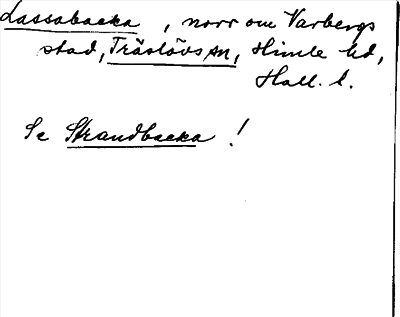 Lassabacka, norr om Varbergs
stad, Träslövs sn, Himle hd,
Hall. l.
Se Strandbacka!